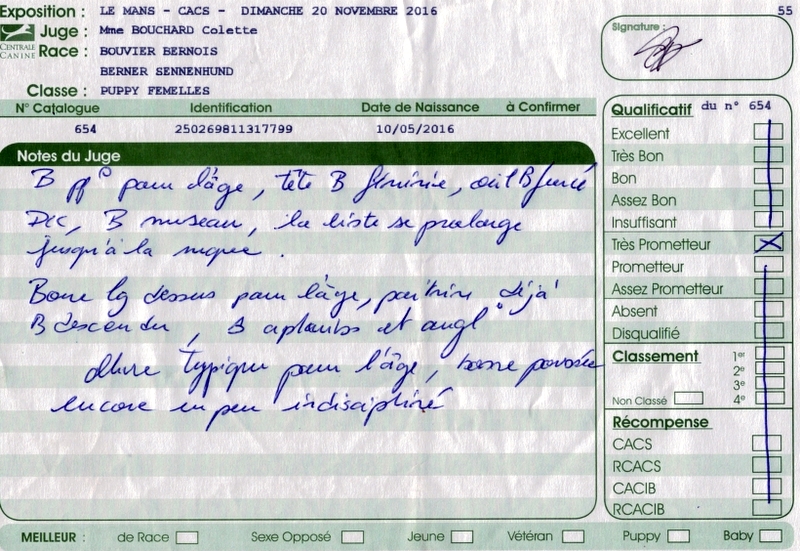 Exposition : LE MANS - CACS - DIMANCHE 20 NOVEMBRE 2016
55
CENTRALE CANINE
Juge : Mme BOUCHARD Colette
Race : BOUVIER BERNOIS
BERNER SENNENHUND
Classe : PUPPY FEMELLES
Signature :
N° Catalogue Identification Date de Naissance à Confirmer
654 250269811317799 10/05/2016
Notes du Juge
B pour l'âge, tête B féminine, oeil B foncé
Dec, B museau, la liste se prolonge
jusqu'à la nuque.
Bone lg dessus pour l'âge, poitrine déjà
B descendu, B aplombs et angl°
allure typique pour l'âge, bonne
encore un peu indiscipliné
Qualificatif du n° 654
Excellent
Très Bon
Bon
Assez Bon
Insuffisant
Très Prometteur X
Prometteur
Assez Prometteur
Absent
Disqualifié
Classement 1er
2e
3e
Non Classé 4e
Récompense
CACS
RCACS
CACIB
RCACIB
MEILLEUR : de Race Sexe Opposé Jeune Vétéran Puppy Baby